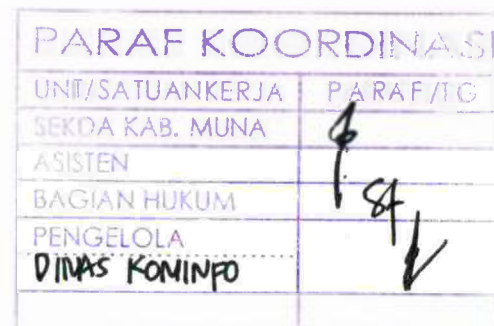 PARAF KOORDINASI
UNIT/SATUANKERJA PARAF/TG
SEKDA KAB. MUNA
ASISTEN
BAGIAN HUKUM
PENGELOLA
DINAS KOMINFO